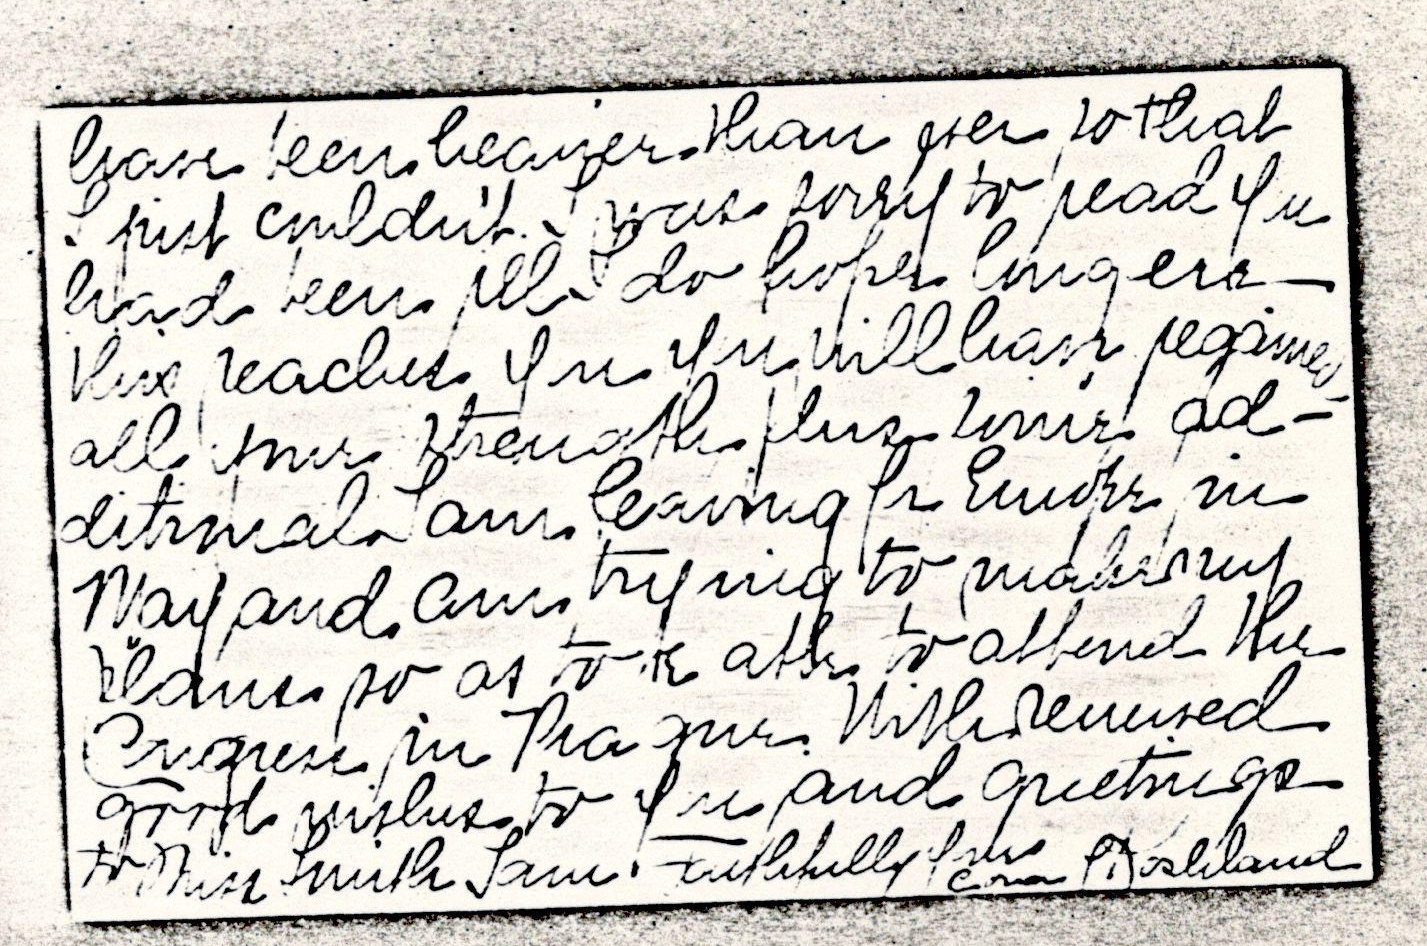 have been heavier than ever so that
I just couldn't. I was sorry to read you
had been ill. I do hope long ere
this reaches you you will have regained
all your strength plus some ad-
ditional. I am leaving for Europe in
May and am trying to make my
plans so as to be able to attend the
Congress in Prague. With renewed
good wishes to you and greetings
to Miss Smith I am. Faithfully yours
Cora Koshland